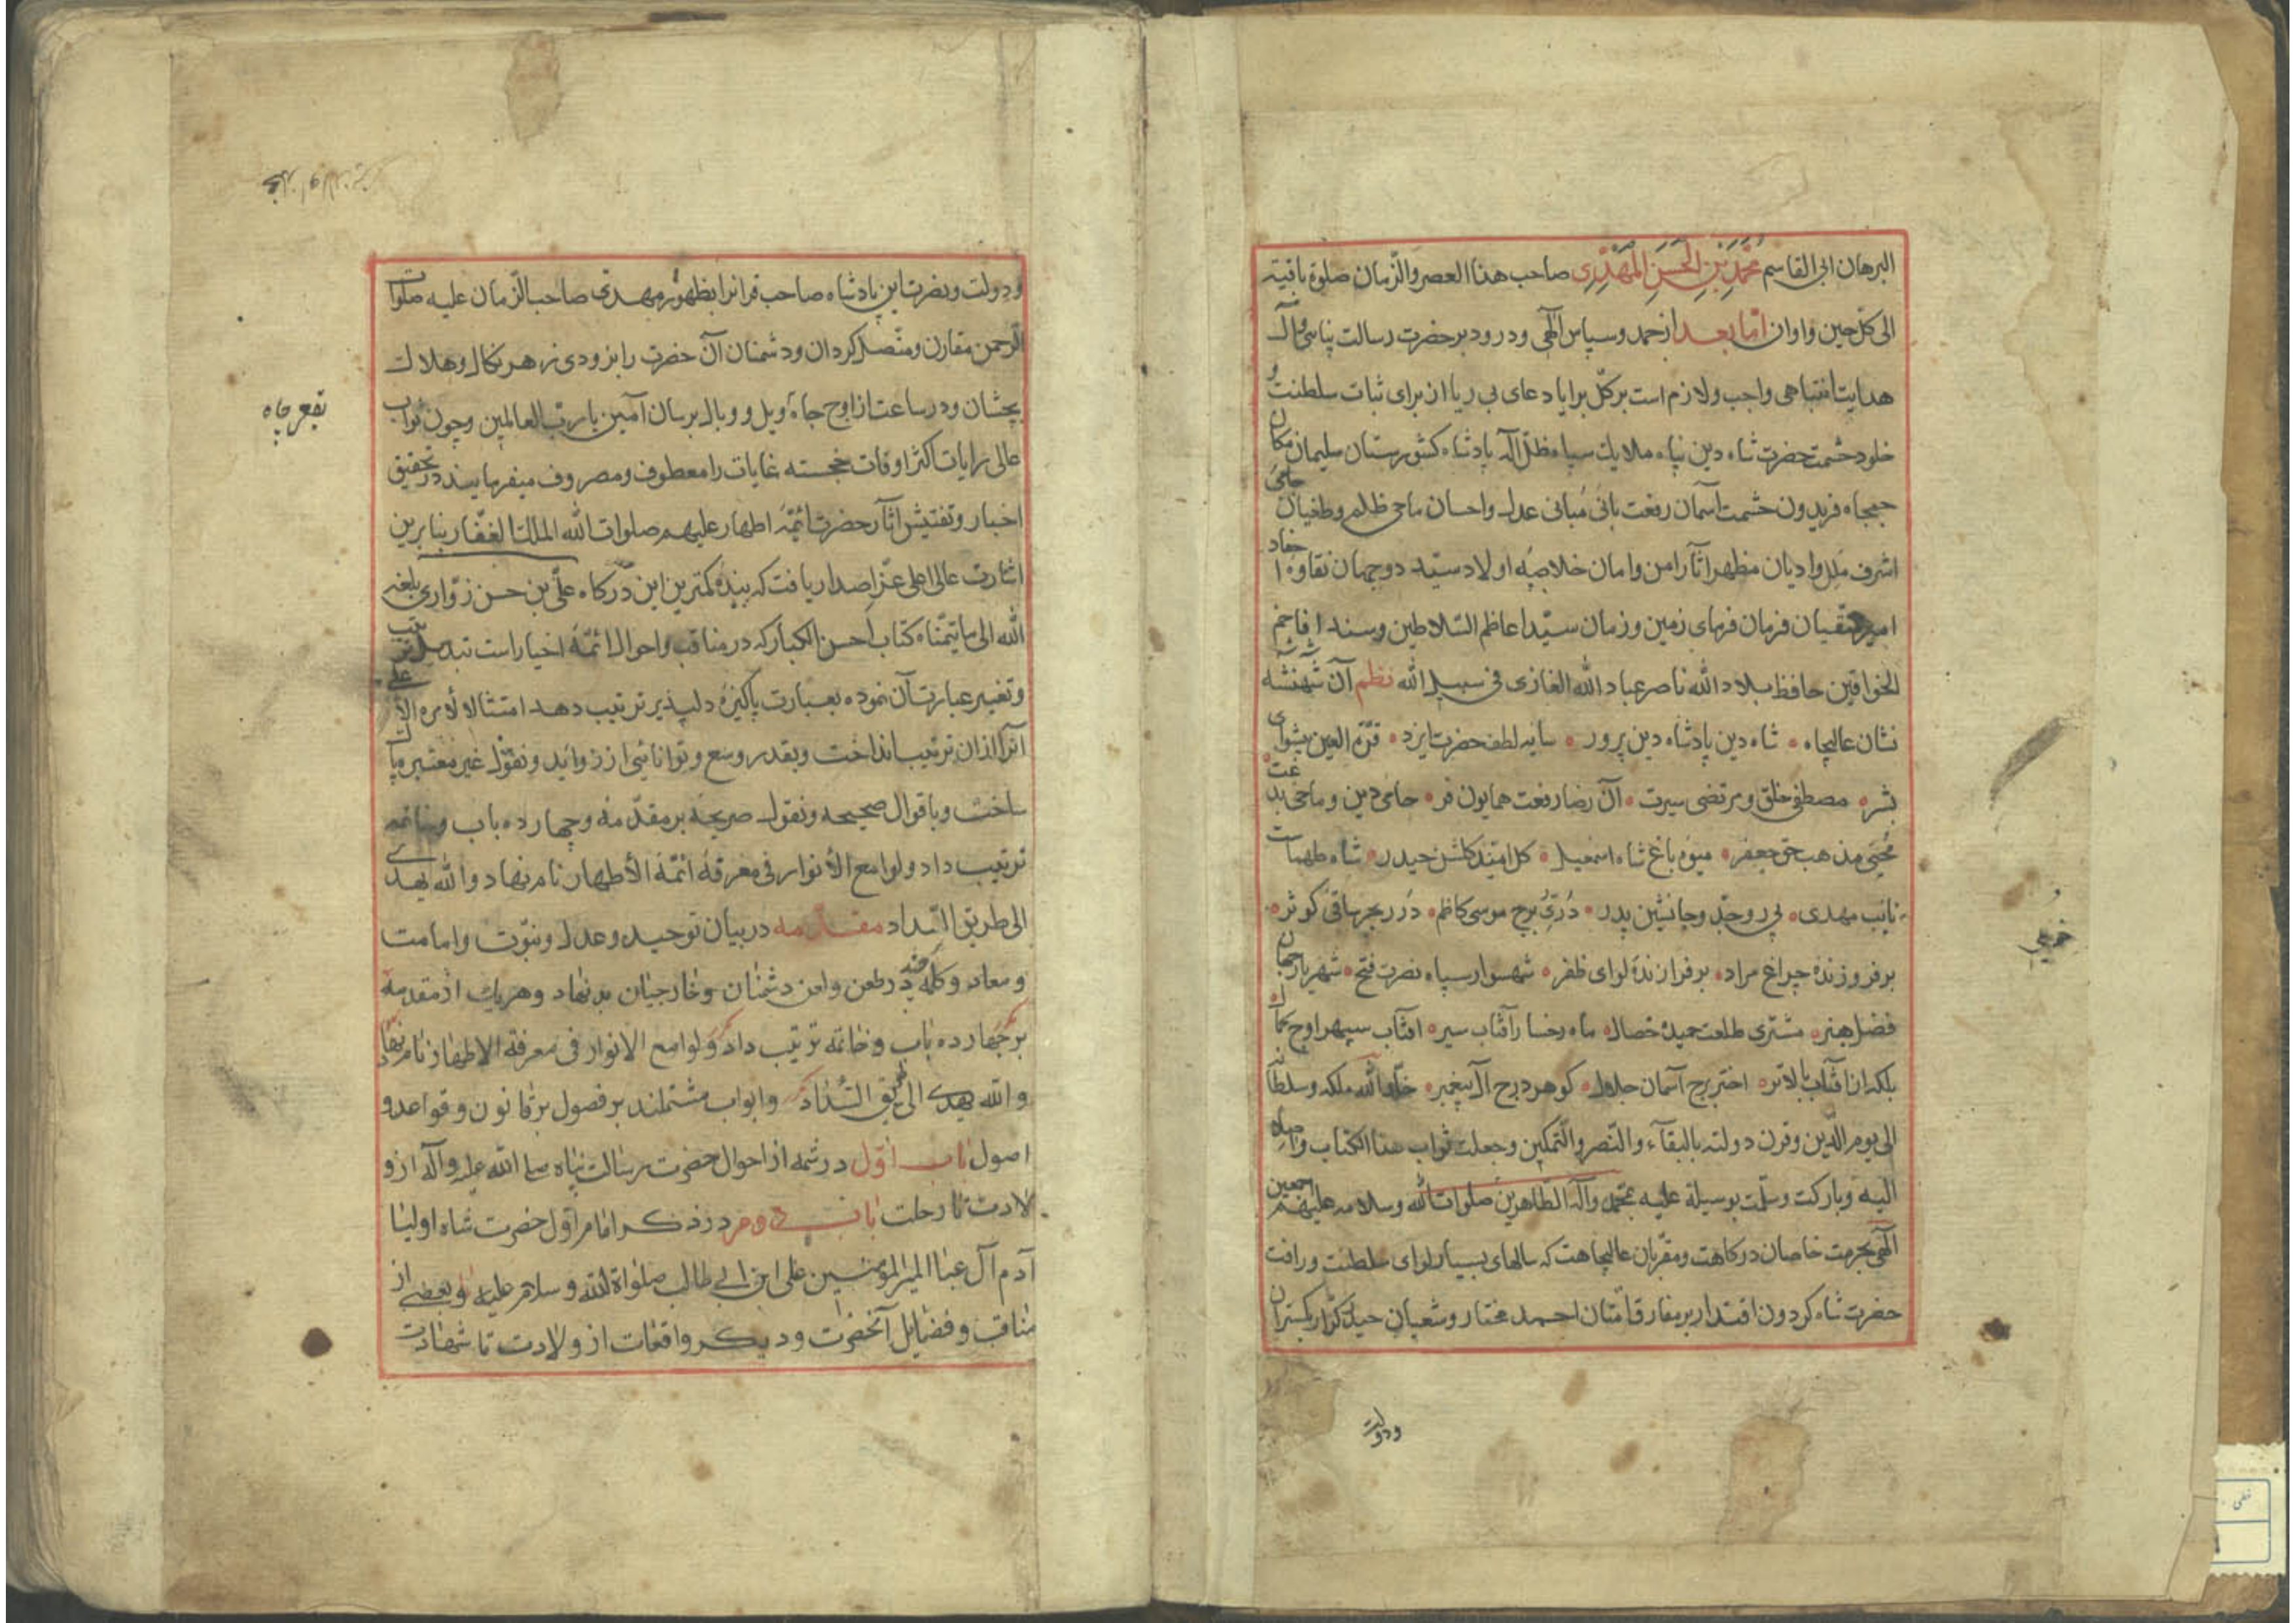 البرهان ابی القاسم محمد بن الحسن المهدی صاحب هذا العصر والزمان صلوة باقیة
الی کل حین و اوان اما بعد از حمد و سپاس الهی و درود بر حضرت رسالت پناهی و آل
هدایت انتباهی واجب و لازم است بر کل برایا دعای بی ریا از برای ثبات سلطنت و
خلود حشمت حضرت شاه دین پناه ملایک سپاه ظل اله پادشاه کشورستان سلیمان مکان
جمجاه فریدون حشمت آسمان رفعت بانی مبانی عدل و احسان ماحی ظلم و طغیان حامی
اشرف ملل و ادیان مظهر آثار امن و امان خلاصه اولاد سید دو جهان نقاوه احفاد
امیر متقیان فرمان فرمای زمین و زمان سید اعاظم السلاطین و سند افاخم
الخواقین حافظ بلاد الله ناصر عباد الله الغازی فی سبیل الله نظم آن شهنشه
نشان عالیجاه شاه دین پادشاه دین پرور سایه لطف حضرت ایزد قرة العین پیشوای
بشر مصطفی خلق و مرتضی سیرت آن رضا رفعت همایون فر حامی دین و ماحی بدعت
محیی مذهب حق جعفر میوه باغ شاه اسمعیل کل امید کلشن حیدر شاه طهماسب
نایب مهدی پی رو جد و جانشین پدر دری برج موسی کاظم در بحر ساقی کوثر
بر فروزنده چراغ مراد بر فرازنده لوای ظفر شهسوار سپاه نصرت فتح شهریار جهان
فضل هنر مشتری طلعت حمیده خصال ماه رخسار آفتاب سیر افتاب سپهر اوج کمال
بلکه از افتاب بالاتر اختر برج آسمان جلال کوهر درج آل پیغمبر خلد الله ملکه و سلطانه
الی یوم الدین و قرن دولته بالبقآء والنصر والتمکین وجعلت ثواب هذا الکتاب
الیه وبارکت وسلمت بوسیلة علیه بمحمد وآله الطاهرین صلوات الله وسلامه علیهم اجمعین
الهی بحرمت خاصان درکاهت و مقربان عالیجاهت که سالهای بسیار لوای سلطنت و رافت
حضرت شاه کردون اقتدار بر مفارق امتان احمد مختار و شعیان حیدر کرار بکستران
ودولت
و دولت و نصرت این پادشاه صاحب قرانرا بظهور مهدی صاحب الزمان علیه صلوات
الرحمن مقارن و متصل کردان و دشمنان آن حضرت را بزودی زهر نکال و هلاک
بچشان و در ساعت از اوج جاه ویل و وبال برسان آمین یا رب العالمین و چون نواب
بقعر چاه
عالی رایات اکثر اوقات خجسته غایات را معطوف و مصروف میفرمایند در تحقیق
اخبار و تفتیش اثار حضرت ائمه اطهار علیهم صلوات الله الملک الغفار بنا برین
اشارت عالی اعلی عز اصدار یافت که بنده کمترین این درکاه علی بن حسن زواری بلغه
الله الی ما یتمناه کتاب احسن الکبار که در مناقب و احوال ائمه اخیار است تبدیل ترتیب
و تغییر عبارت آن نموده بعبارت پاکیزه دلپذیر ترتیب دهد امتثالا لأمره الأعلی
انرا از ان ترتیب انداخت و بقدر وسع و توانائی از زواید و نقول غیر معتبره پاک
ساخت و باقوال صحیحه و نقول صریحه بر مقدمه و چهارده باب و خاتمه
ترتیب داد و لوامع الأنوار فی معرفة ائمة الأطهار نام نهاد والله یهدی
الی طریق السداد مقدمه در بیان توحید و عدل و نبوت و امامت
و معاد و کلمه چند در طعن و لعن دشمنان و خارجیان بدنهاد و هریک از مقدمه
بر چهارده باب و خاتمه ترتیب داد و لوامع الانوار فی معرفة الاطهار نام نهاد
والله یهدی الی طریق السداد و ابواب مشتملند بر فصول بر قانون و قواعد و
اصول باب اول در شمه از احوال حضرت رسالت پناه صلی الله علیه وآله از و
لادت تا رحلت باب دوم در ذکر امام اول حضرت شاه اولیا
آدم آل عبا امیر المؤمنین علی ابن ابی طالب صلواة الله وسلامه علیه و بعضی از
مناقب و فضایل آنحضرت و دیکر واقعات از ولادت تا شهادت